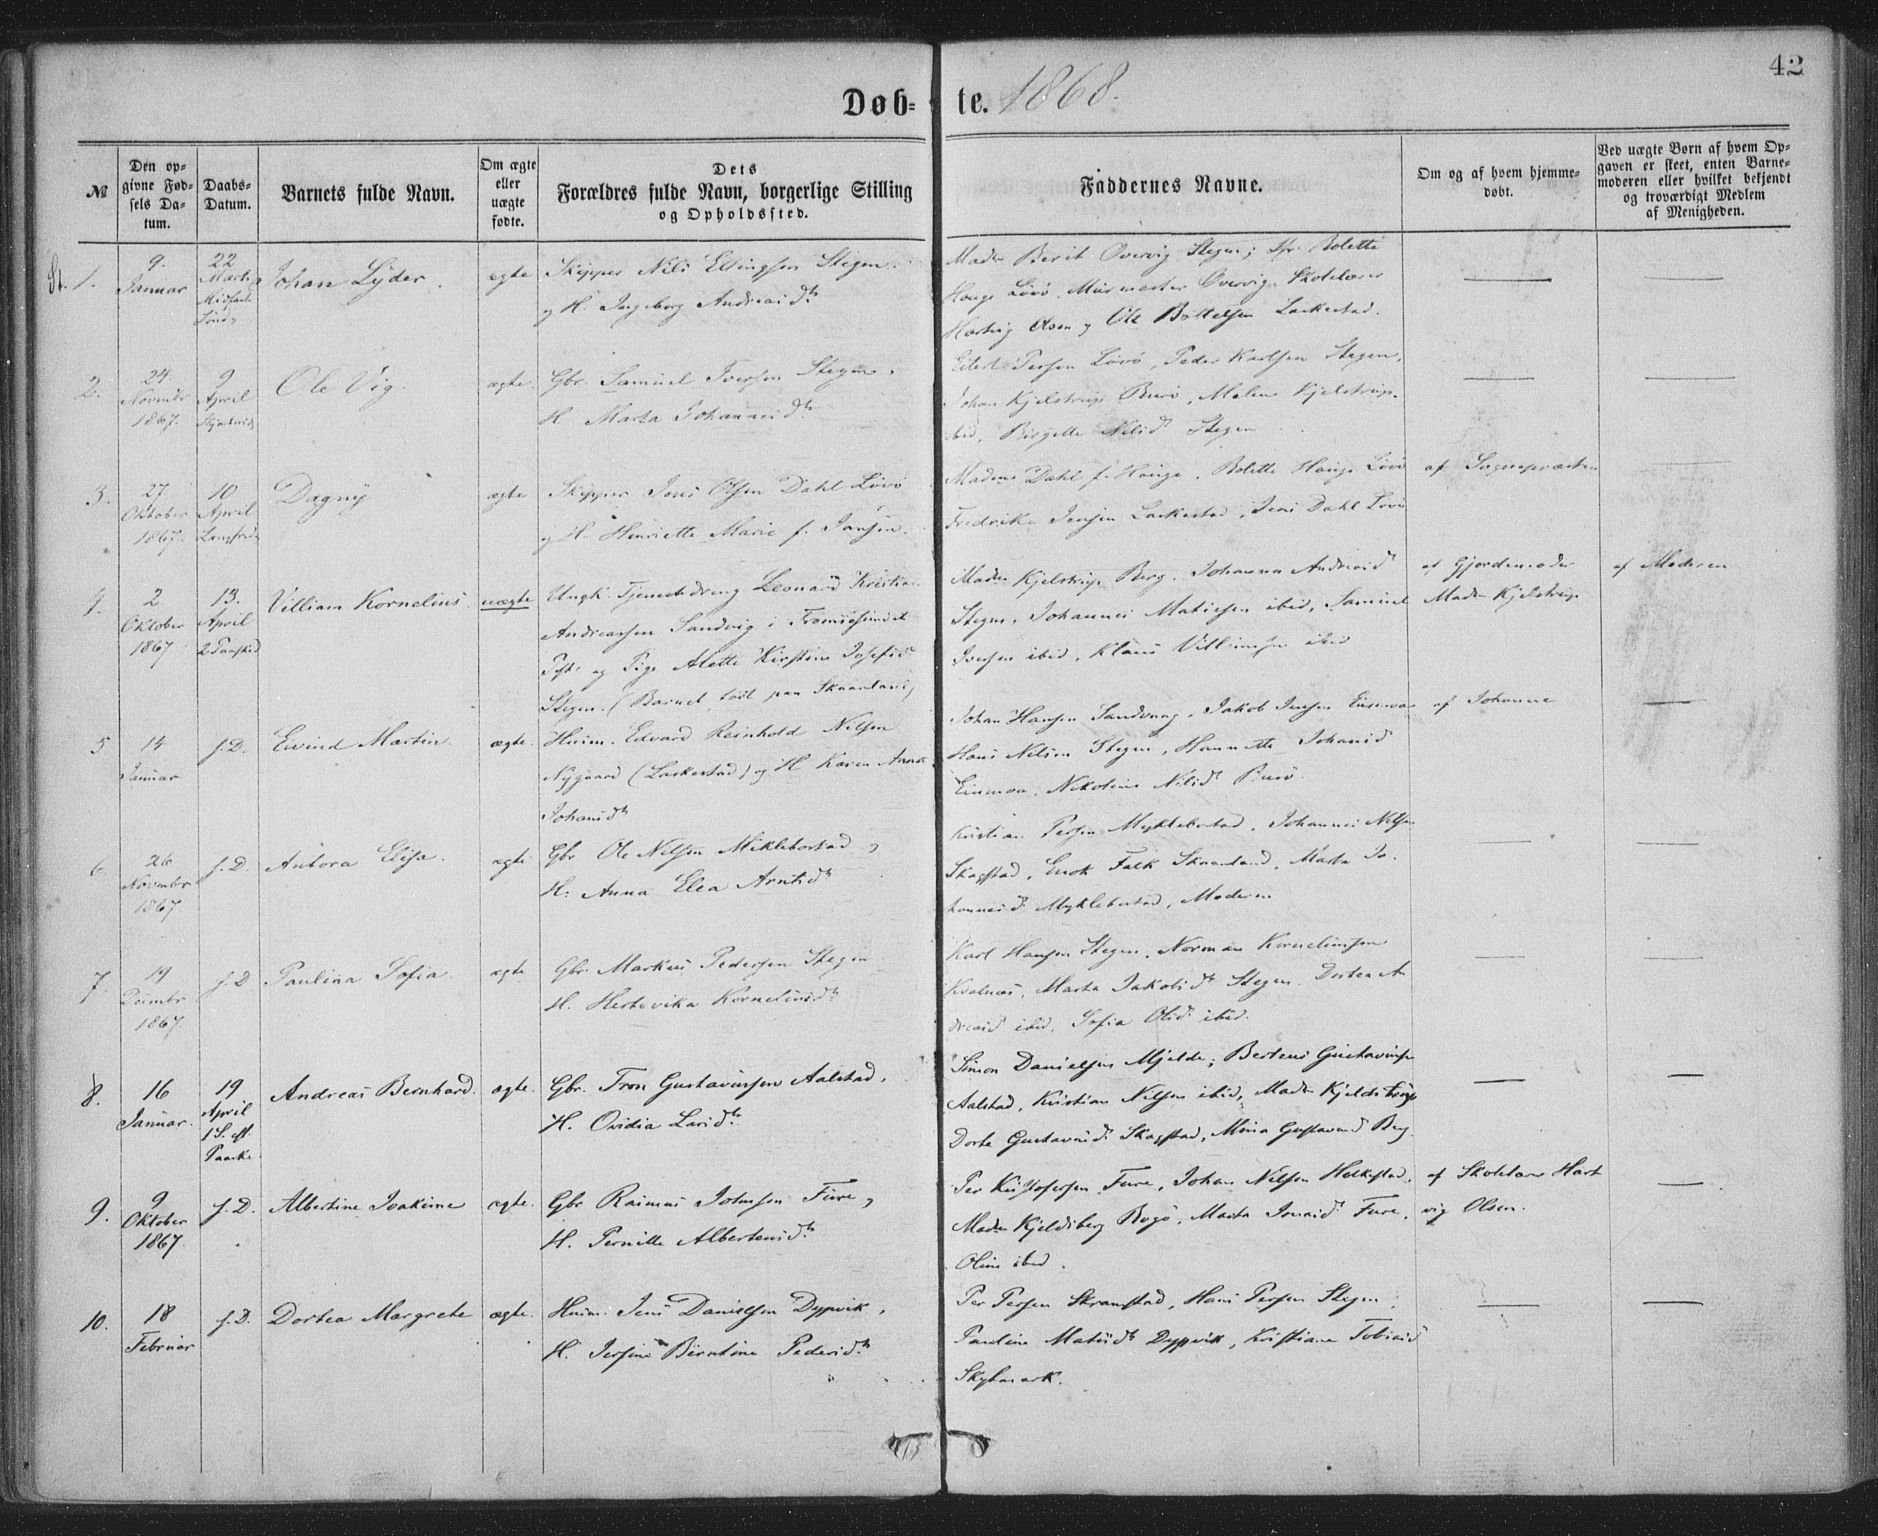 42
Døb- te. 1868.
№
Den opgivne Fødsels Datum.
Daabs-Datum.
Barnets fulde Navn.
Om ægte eller uægte fødte.
Dets Forældres fulde Navn, borgerlige Stilling og Opholdssted.
Faddernes Navne.
Om og af hvem hjemmedøbt.
Ved uægte Børn af hvem Opgaven er skeet, enten Barnemoderen eller hvilket bekjendt og troværdigt Medlem af Menigheden.
St. 1.
9. Januar
22 Marts
Johan Lyder.
ægte
Skipper Nils Ellingsen Stegen
og H. Ingeborg Andreasdt.
Madm Berit Overvig Stegen; Bolette
Houge Lövö, Murmester Overvig, Skolelærer
Hartvig Olsen og Ole Bottelsen Laskestad.
2.
24. November 1867.
9 April
Ole Vig.
ægte.
Gbr. Samuel Iversen Stegen,
H. Marta Johannesdt.
Eilert Persen Lövö, Peder Karlsen Stegen,
Johan Kjelstrup Burö, Malene Kjelstrup
ibid, Birgitte Nilsd. Stegen
3.
27 Oktober 1867.
10 April Langfred.
Dagny
ægte
Skipper Jens Olsen Dahl Lövö
og H. Henriette Marie f. Jansen.
Madm Dahl f. Houge, Bolette Houge Lövö
Fredrikke Jensen Laskestad, Jens Dahl Lövö
af Sognepræsten
4.
2 Oktober 1867
13. April 2 Paaskd.
Villiam Kornelius.
uægte
Ungk. Tjenestedreng Leonard Kristian
Andreassen Sandvig i Tromsösundet
Pst. og Pige Alette Kirstine Josefsdt.
Stegen. (Barnet födt paa Skaanland)
Madm Kjelstrup Berg, Johanna Andreasd.
Stegen, Johannes Matiesen ibid, Samuel
Iversen ibid, Klaus Villumsen ibid
af Gjordemoder
Madm Kjelstrup
af Moderen
5
14 Januar
s.D.
Eivind Martin.
ægte.
Huusm. Edvard Reinhold Nilsen
Nygaard (Laskestad) og H. Karen Anna
Johansdt.
Johan Hansen Sandvaag, Jakob Jensen
Hans Nilsen Stegen, Hannette Johansd.
Nikoline Nilsdt. Burö.
af Johanne
6
26 November 1867.
s.D.
Antora Elisa.
ægte
Gbr. Ole Nilsen Miklebostad og
H. Anna Elea Arntsdt.
Kristian Persen Myklebostad, Johannes Nilsen
Skagstad, Enok Falk Skaanland, Marta Jo-
hannesd. Myklebostad, Moderen
7.
19 Decembr 1867.
s.D.
Paulina Sofia.
ægte
Gbr. Markus Pedersen Stegen
H. Hertevika Korneliusdt.
Karl Hansen Stegen, Norman Korneliussen
Kvalnes, Marta Jakobsdt. Stegen, Dortea An-
dreasd. ibid, Sofia Olsd. ibid.
8.
16 Januar.
19 April 1 S. eft. Paaske.
Andreas Bernhard.
ægte.
Gbr. Tron Gustavinsen Aalstad,
H. Ovidia Larsdt.
Simon Danielsen Mjelde, Berteus Gustavinsen
Aalstad, Kristian Nilsen ibid, Madm Kjeldstrup
Dorte Gustavasd. Skagstad, Mina Gustavsd. Berg.
9.
9 Oktober 1867.
s.D.
Albertine Joakime
ægte.
Gbr. Rasmus Johnsen Fure og
H. Pernille Albertsusdt.
Per Kristofersen Fure, Johan Nilsen Helkestad,
Madm Kjeldsberg Bogö, Marta Jonasd. Fure,
Oline ibid.
af Skolelærer Hart-
vig Olsen.
10.
18 Februar
s.D.
Dortea Margrete
ægte.
Huusm. Jens Danielsen Dypvik,
H. Jersine Berntine Pedersdt.
Per Persen Stranstad, Hans Persen Stegen,
Pauline Matisdt. Dypvik, Kristiane Tobiasd.
Skjelmark.